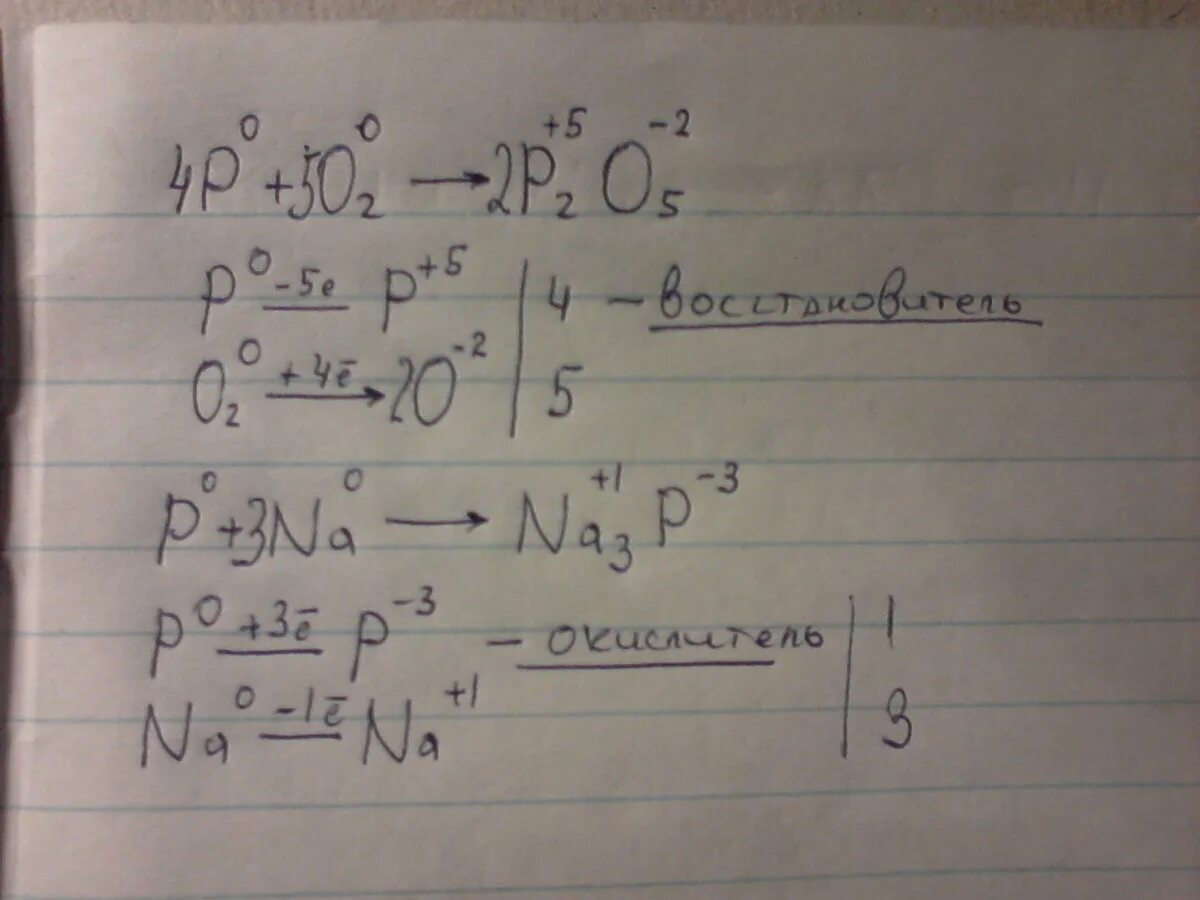 4P⁰ + 5O₂⁰ → 2P₂⁺⁵O₅⁻²
P⁰ -5e P⁺⁵ | 4 – восстановитель
O₂⁰ +4ē → 2O⁻² | 5
P⁰ + 3Na⁰ → Na₃⁺¹P⁻³
P⁰ +3ē P⁻³ – окислитель | 1
Na⁰ -1ē Na⁺¹ | 3